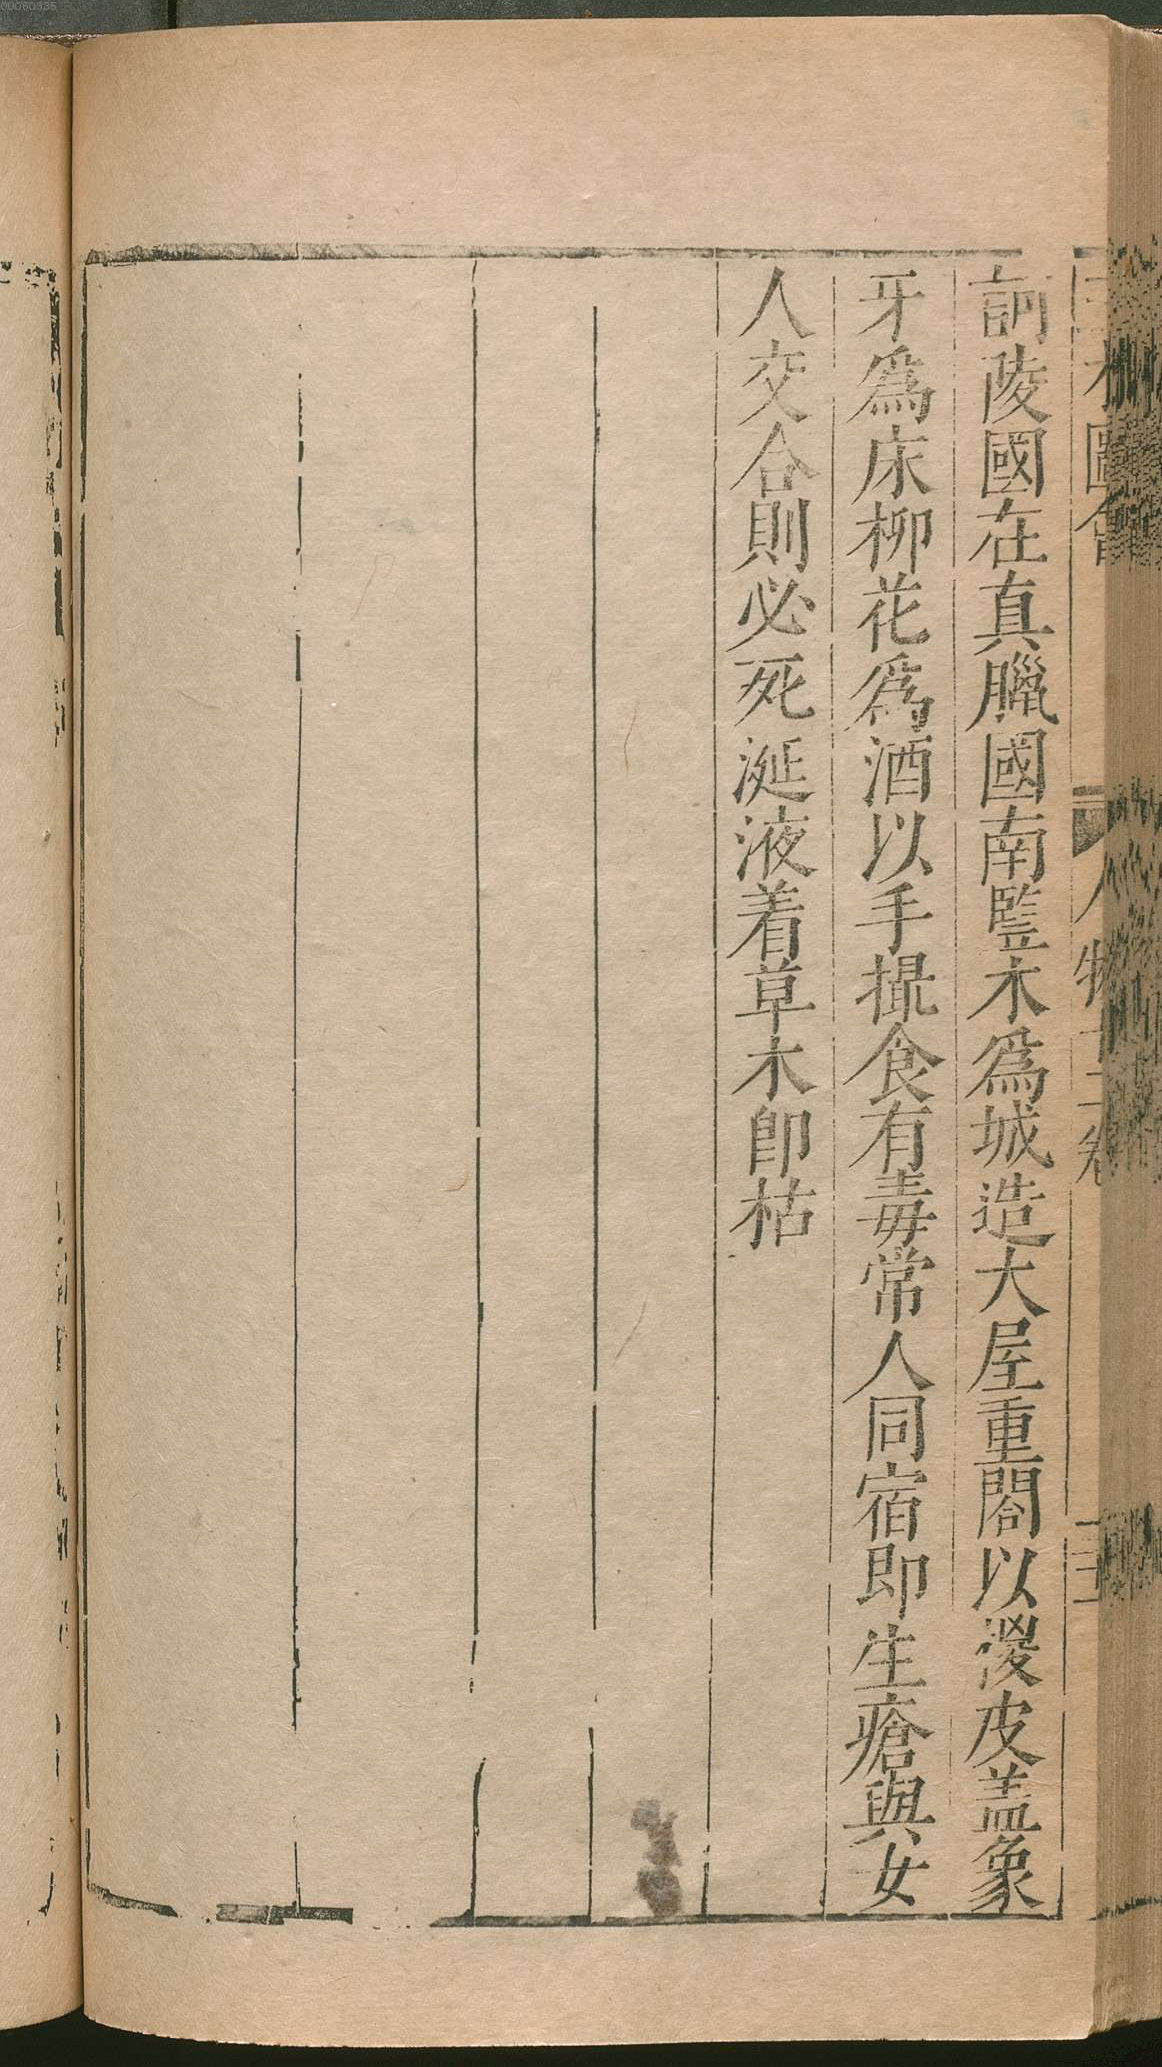 訶陵國在真臘國南豎木爲城造大屋重閣以椶皮盖象
牙爲床柳花爲酒以手撮食有毒常人同宿即生瘡與女
人交合則必死涎液着草木即枯
00060335